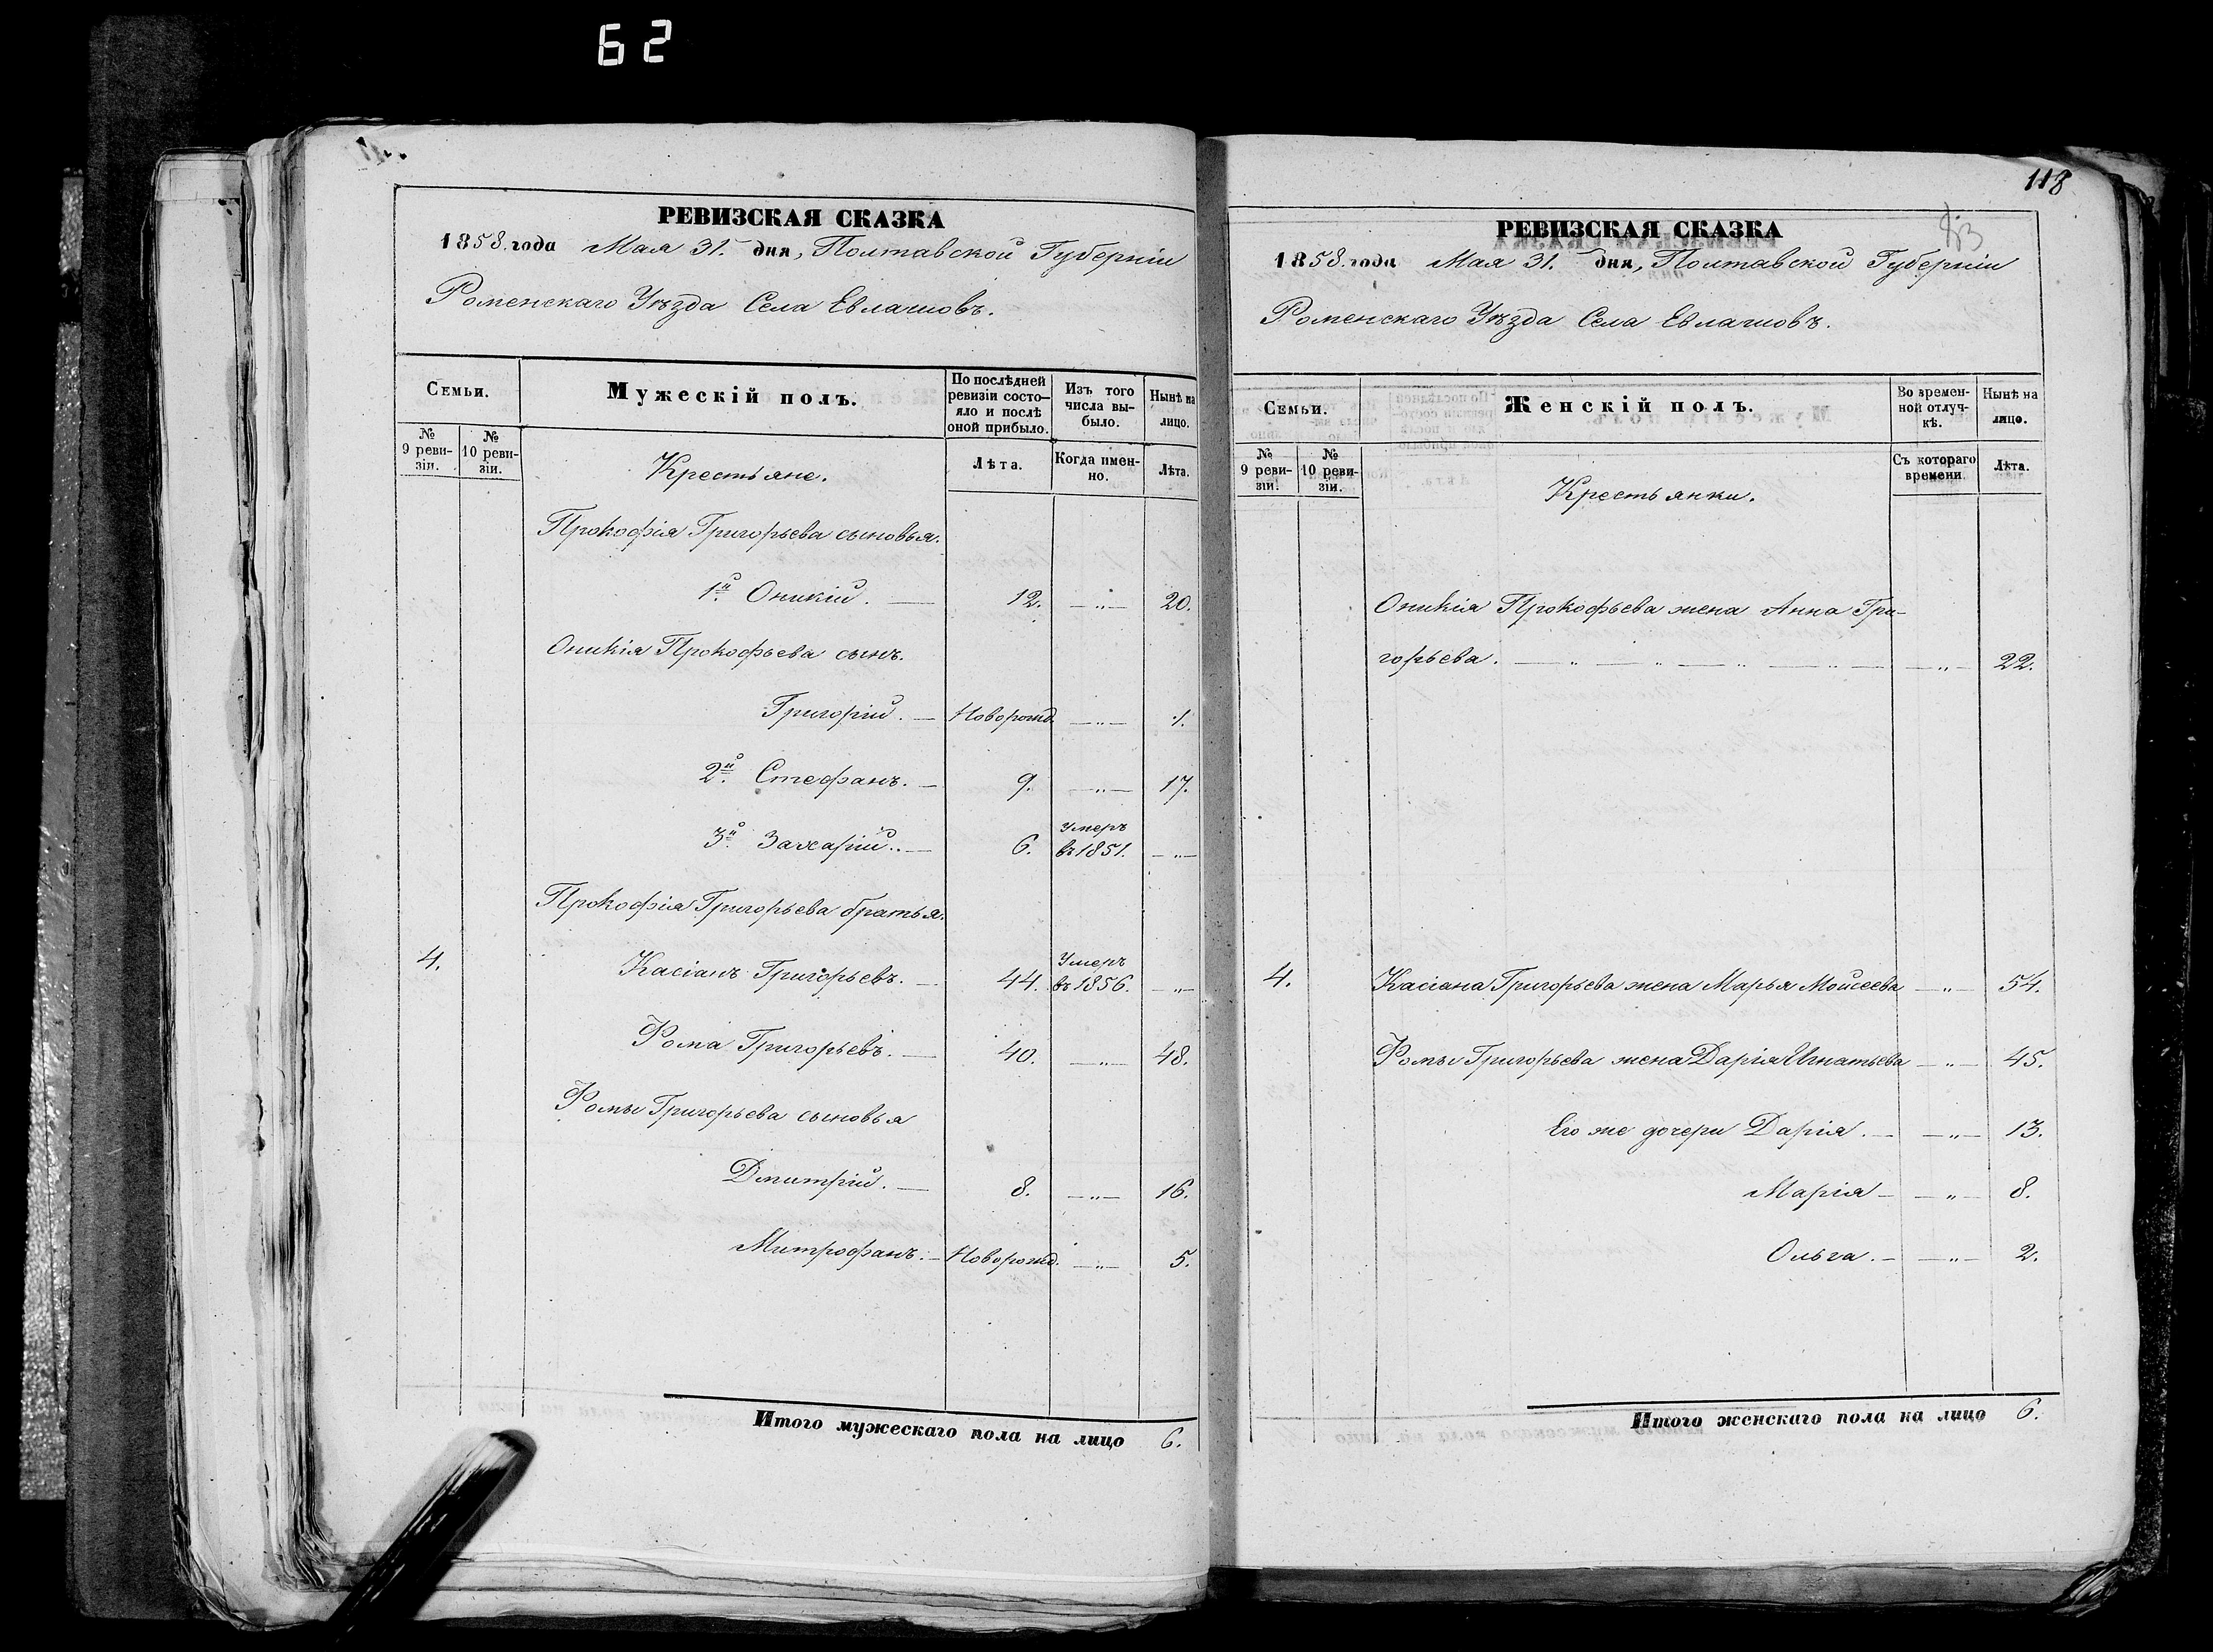 62
РЕВИЗСКАЯ СКАЗКА
1858. года Мая 31. дня, Полтавской Губерніи
Роменскаго Уѣзда Села Евлашовъ.
Семьи.
Мужескій полъ.
По послѣдней ревизіи состо-яло и послѣ оной прибыло.
Изъ того числа вы-было.
Нынѣ на лицо.
№ 9 реви-зіи.
№ 10 реви-зіи.
Крестьяне.
Лѣта.
Когда имен-но.
Лѣта.
Прокофія Григорьева сыновья.
1й Оникій. — 12. —"— 20.
Оникія Прокофьева сынъ.
Григорій. — Новорожд. —"— 1.
2й Стефанъ. — 9. —"— 17.
3й Захарій. — 6. Умеръ въ 1851. —"—
Прокофія Григорьева братья.
4. Касіанъ Григорьевъ. — 44. Умеръ въ 1856. —"—
Фома Григорьевъ. — 40. —"— 48.
Фомы Григорьева сыновья
Дмитрій. — 8. —"— 16.
Митрофанъ. — Новорожд. —"— 5.
Итого мужескаго пола на лицо 6.
118
РЕВИЗСКАЯ СКАЗКА
1858. года Мая 31. дня, Полтавской Губерніи
Роменскаго Уѣзда Села Евлашовъ.
Семьи.
Женскій полъ.
Во времен-ной отлуч-кѣ.
Нынѣ на лицо.
№ 9 реви-зіи.
№ 10 реви-зіи.
Крестьянки.
Съ котораго времени
Лѣта.
Оникія Прокофьева жена Анна Гри-
горьева. — " — " — " — " — —"— 22.
4. Касіана Григорьева жена Марья Моисеева —"— 54.
Фомы Григорьева жена Дарія Игнатьева —"— 45.
Его же дочери Дарія. — —"— 13.
Марія — —"— 8.
Ольга. — —"— 2.
Итого женскаго пола на лицо 6.